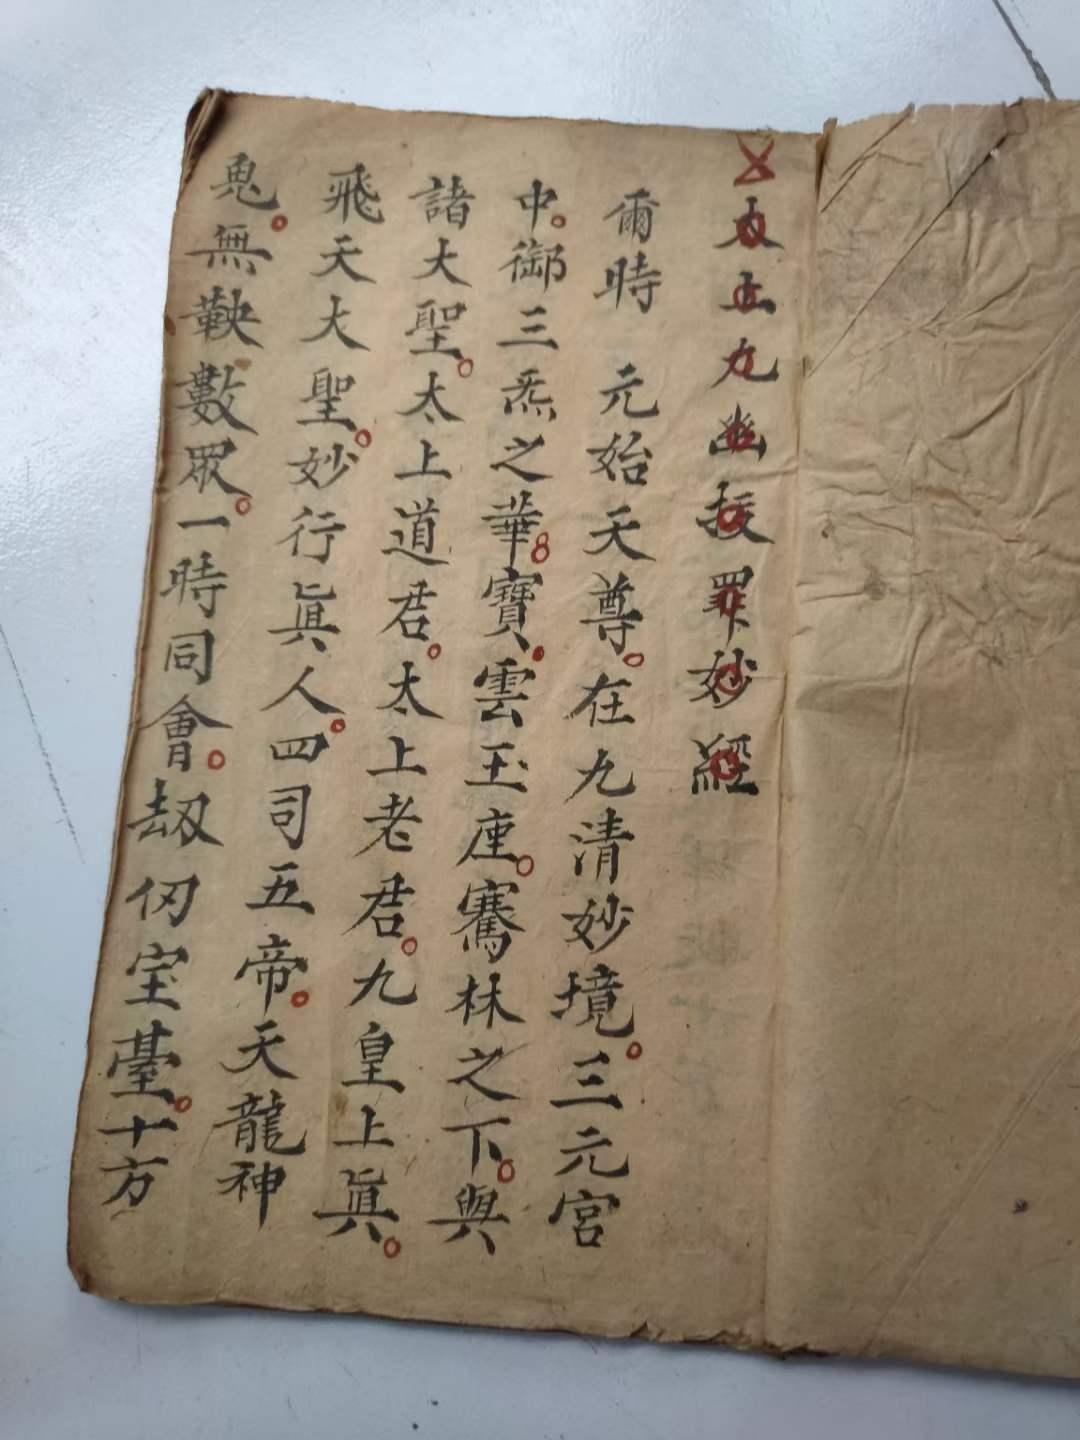 太上九幽拔罪妙經
爾時 元始天尊。在九清妙境。三元宮
中。御三炁之華。寶雲玉座。騫林之下。與
諸大聖。太上道君。太上老君。九皇上眞。
飛天大聖。妙行眞人。四司五帝。天龍神
鬼。無鞅數眾。一時同會。刼仞宝臺。十方